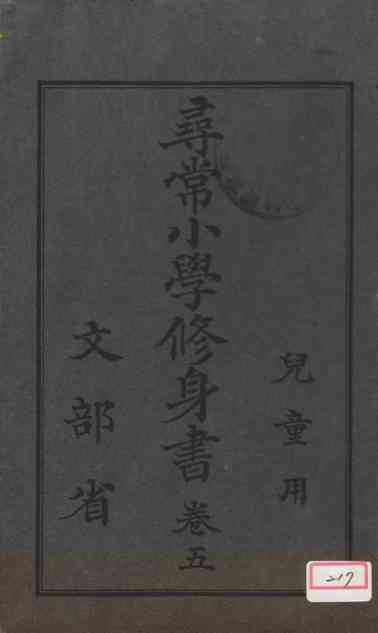 兒童用
尋常小學修身書 卷五
文部省
217